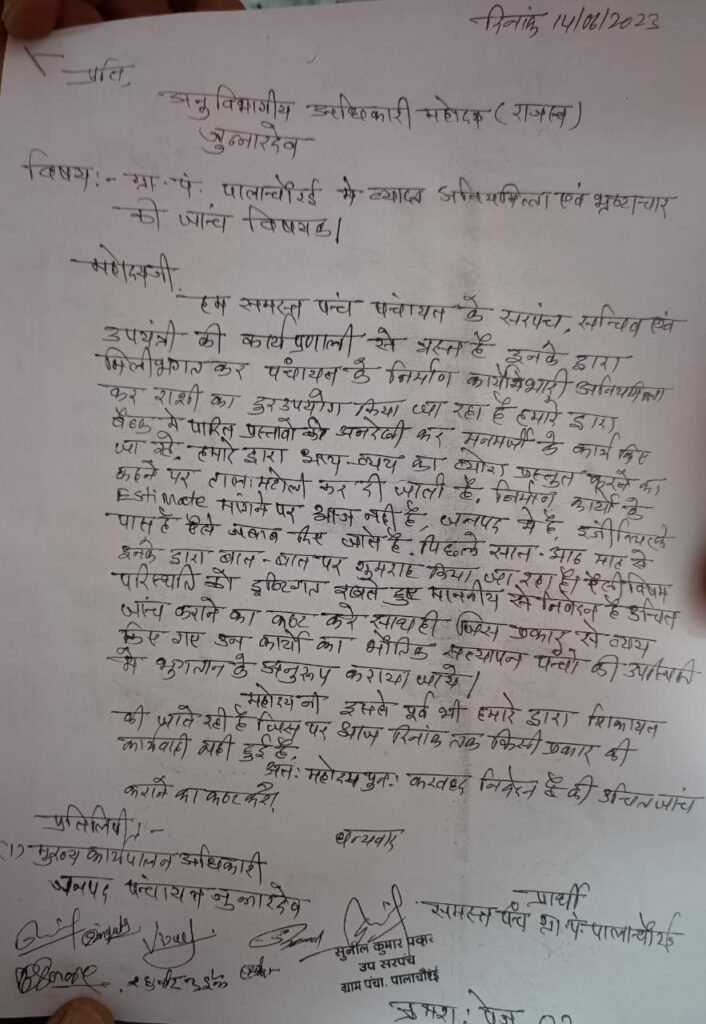 दिनांक 14/06/2023
प्रति,
अनुविभागीय अधिकारी महोदय (राजस्व)
जुन्नारदेव
विषय:- ग्रा. पं. पालाचौरई मे व्याप्त अनियमित्ता एवं भ्रष्टाचार
की जांच विषयक।
महोदयजी,
हम समस्त पंच पंचायत के सरपंच, सचिव एवं
उपयंत्री की कार्य प्रणाली से त्रस्त है इनके द्वारा
मिलीभगत कर पंचायत के निर्माण कार्यो भारी अनियमित्ता
कर राशी का दुरउपयोग किया जा रहा है हमारे द्वारा
बैठक मे पारित प्रस्तावो की अनदेखी कर मनमर्जी के कार्य किए
जा रहे, हमारे द्वारा आय-व्यय का ब्योरा प्रस्तुत करने का
कहने पर टालमटोल कर दी जाती है. निर्माण कार्यो के
Estimate मांगने पर आज नही है, जनपद मे है, इंजीनियर के
पास है ऐसे जबाब दिए जाते है. पिछले सात-आठ माह से
इनके द्वारा बात-बात पर गुमराह किया जा रहा है। ऐसी विषम
परिस्थिति को दृष्टिगत रखते हुए माननीय से निवेदन है उचित
जांच कराने का कष्ट करे साथ ही जिस प्रकार से व्यय
किए गए उन कार्यो का भौतिक सत्यापन पंचो की उपस्थिति
मे भुगतान के अनुरूप कराया जाये।
महोदय जी इसके पूर्व भी हमारे द्वारा शिकायत
की जाते रही है जिस पर आज दिनांक तक किसी प्रकार की
कार्यवाही नही हुई है.
अत: महोदय पुन: करबद्ध निवेदन है की उचित जांच
कराने का कष्ट करे।
धन्यवाद
प्रतिलिपी:-
(1) मुख्य कार्यपालन अधिकारी
जनपद पंचायत जुन्नारदेव
प्रार्थी
समस्त पंच ग्रा. पं. पालाचौरई
सुनील कुमार पवार
उप सरपंच
ग्राम पंचा. पालाचौरई
क्रमश: पेज 02